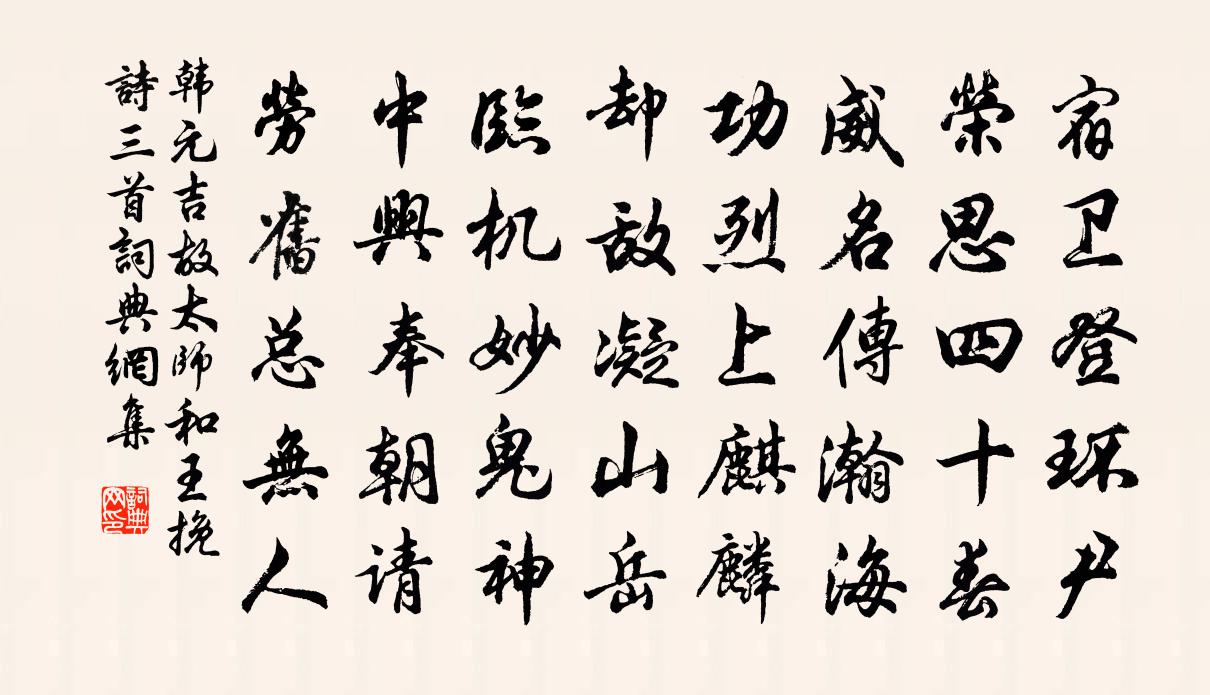 宿卫登环尹
榮思四十春
威名傳瀚海
功烈上麒麟
却敌凝山岳
臨机妙鬼神
中興奉朝请
勞舊总無人
韩元吉故太師和王挽
詩三首詞典網集
詞典网印